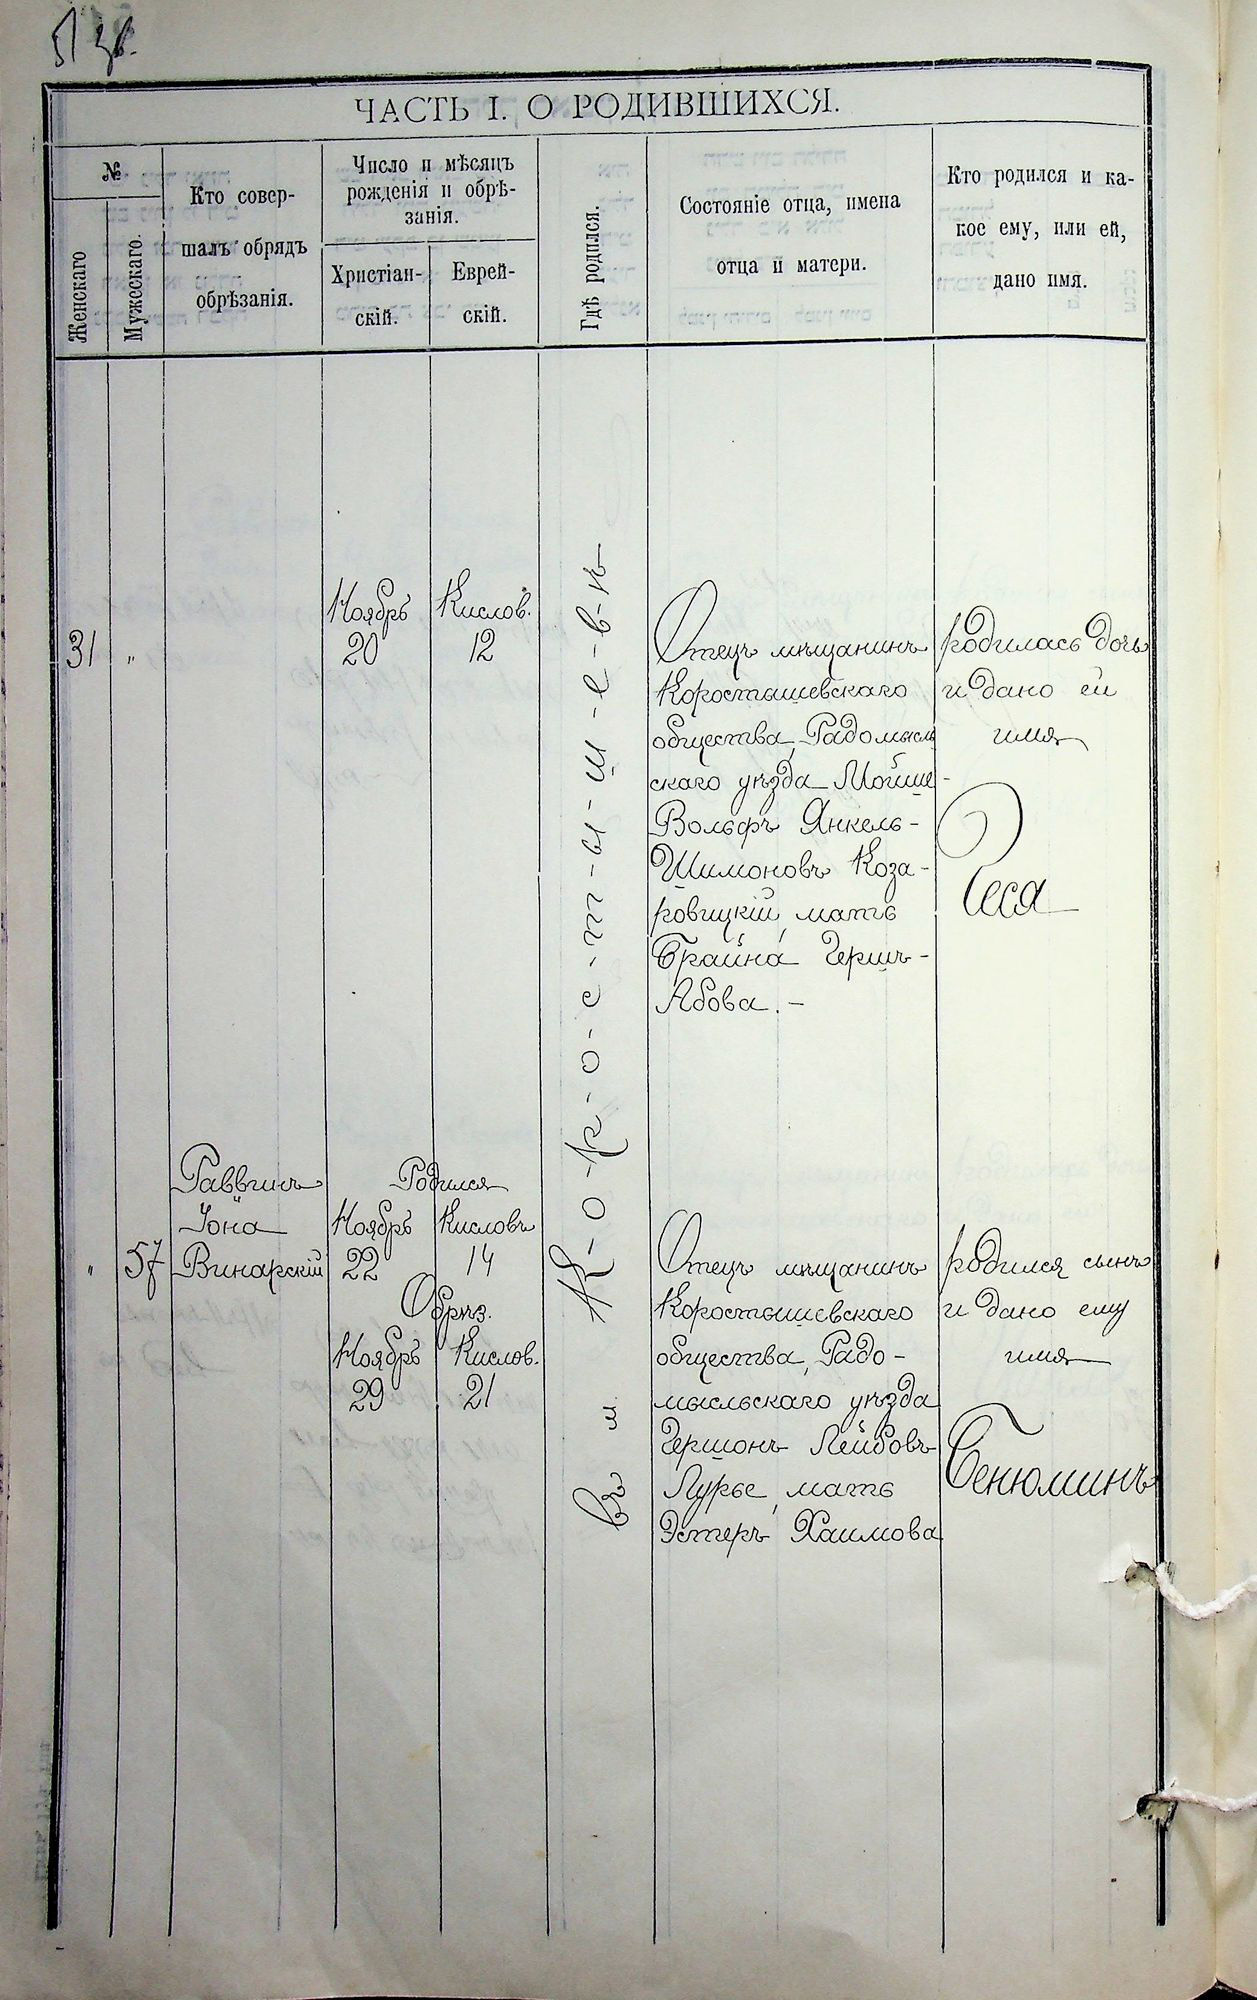 51 зв.
ЧАСТЬ I. О РОДИВШИХСЯ.
№
Женскаго
Мужескаго.
Кто совер-
шалъ обрядъ
обрѣзанія.
Число и мѣсяцъ
рожденія и обрѣ-
занія.
Христіан-
скій.
Еврей-
скій.
Гдѣ родился.
Состояніе отца, имена
отца и матери.
Кто родился и ка-
кое ему, или ей,
дано имя.
31
"
Ноябрь
20
Кислов.
12
Отецъ мѣщанинъ
Коростышевскаго
общества, Радомысль
скаго уѣзда Мойше-
Вольфъ Янкель-
Шимоновъ Коза-
ровицкій, мать
Брайна Гершъ-
Абова. -
родилась дочь
и дано ей
имя
Песя
Въ м. К-о-р-о-с-т-ы-ш-е-в-ѣ
"
57
Раввинъ
Іона
Винарскій
Родился
Ноябрь
22
Кисловъ
14
Обрѣз.
Ноябрь
29
Кислов.
21
Отецъ мѣщанинъ
Коростышевскаго
общества, Радо-
мысльскаго уѣзда
Гершонъ Лейбовъ
Лурье, мать
Эстеръ Хаимова
родился сынъ
и дано ему
имя
Бенюминъ